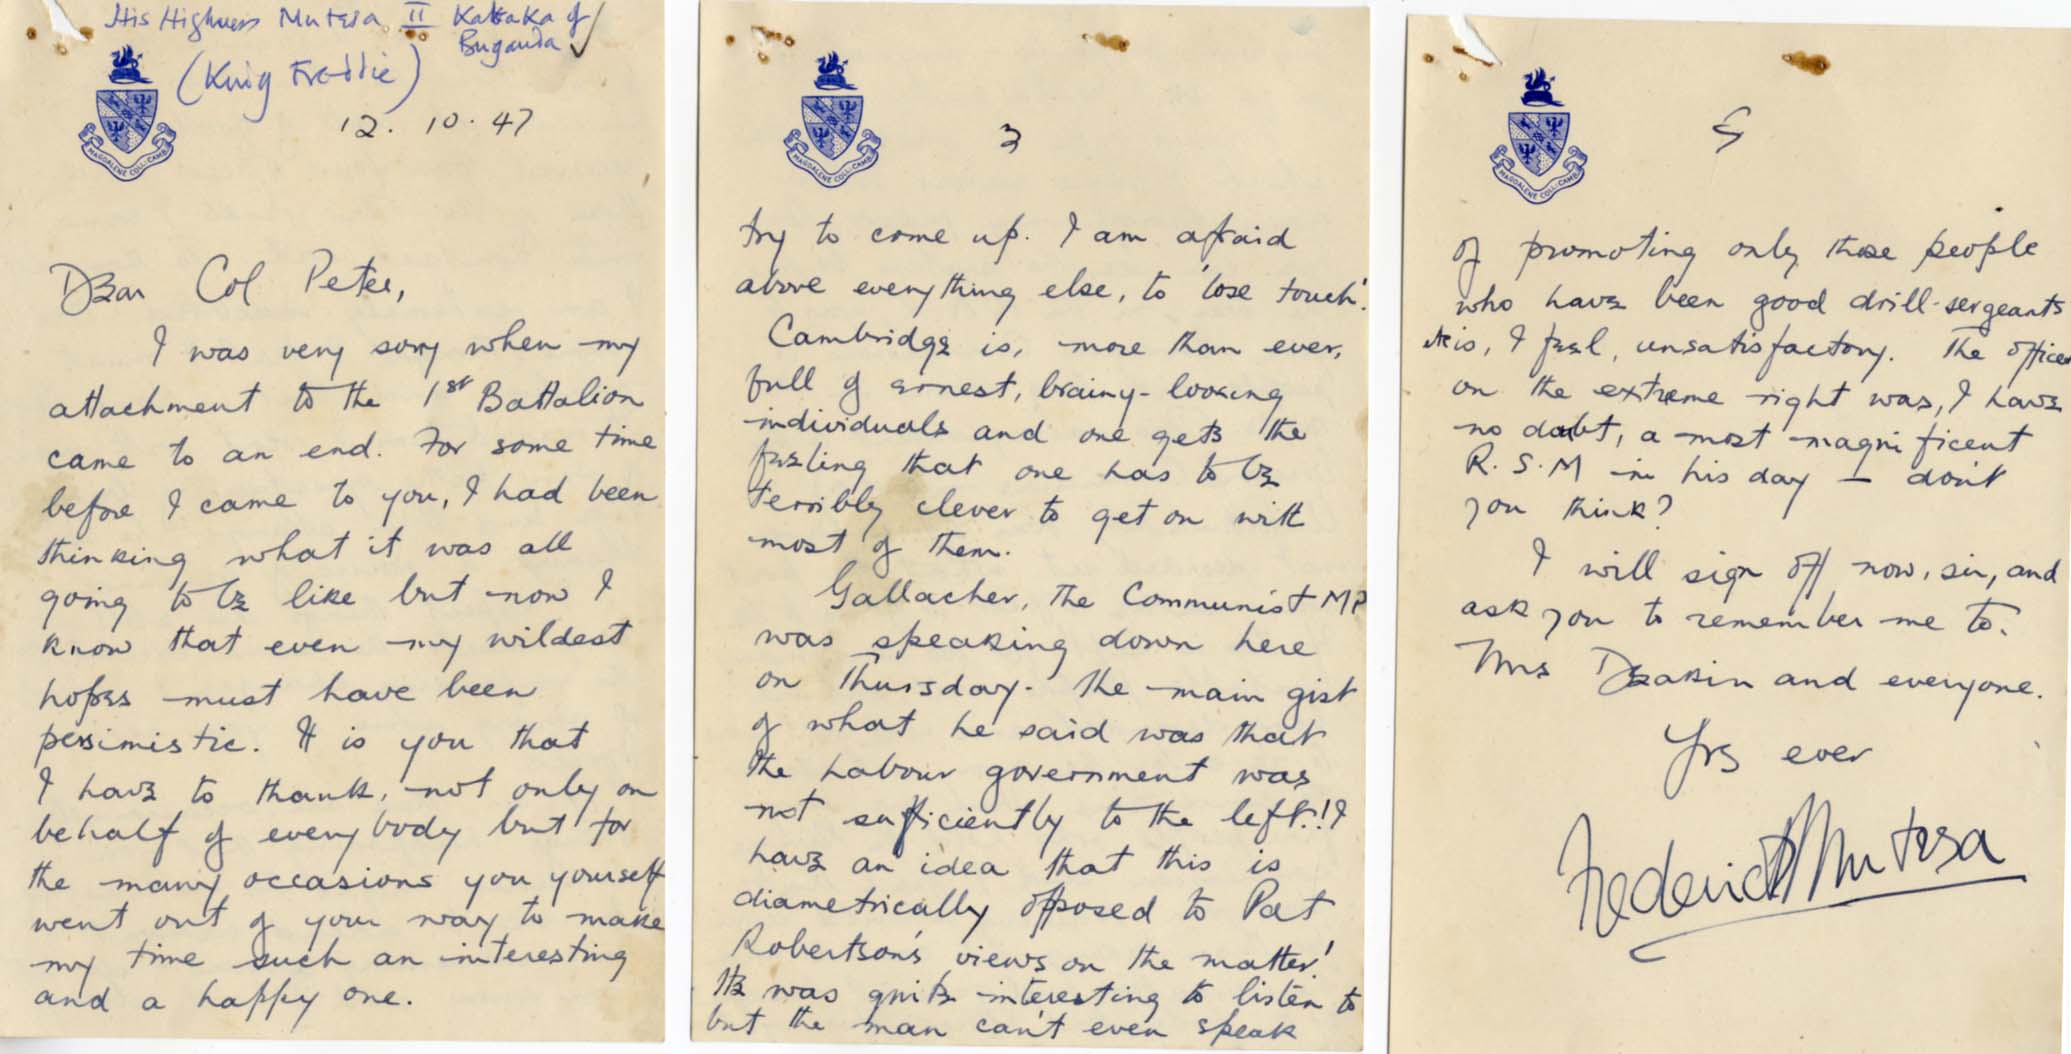 His Highness Mutesa II Kabaka of
Buganda
(King Freddie)
MAGDALENE COLL: CAMB:
12. 10. 47
Dear Col Peter,
I was very sorry when my
attachment to the 1st Battalion
came to an end. For some time
before I came to you, I had been
thinking what it was all
going to be like but now I
know that even my wildest
hopes must have been
pessimistic. It is you that
I have to thank, not only on
behalf of everybody but for
the many occasions you yourself
went out of your way to make
my time such an interesting
and a happy one.
MAGDALENE COLL: CAMB:
3
try to come up. I am afraid
above everything else, to 'lose touch'.
Cambridge is, more than ever,
full of ernest, brainy-looking
individuals and one gets the
feeling that one has to be
terribly clever to get on with
most of them.
Gallacher, the Communist MP
was speaking down here
on Thursday. The main gist
of what he said was that
the Labour government was
not sufficiently to the left!! I
have an idea that this is
diametrically opposed to Pat
Robertson's views on the matter!
He was quite interesting to listen to
but the man can't even speak
MAGDALENE COLL: CAMB:
5
of promoting only those people
who have been good drill-sergeants
is, I feel, unsatisfactory. The officer
on the extreme right was, I have
no doubt, a most magnificent
R.S.M in his day — don't
you think?
I will sign off now, sir, and
ask you to remember me to
Mrs Deakin and everyone.
Yrs ever
Frederick Mutesa